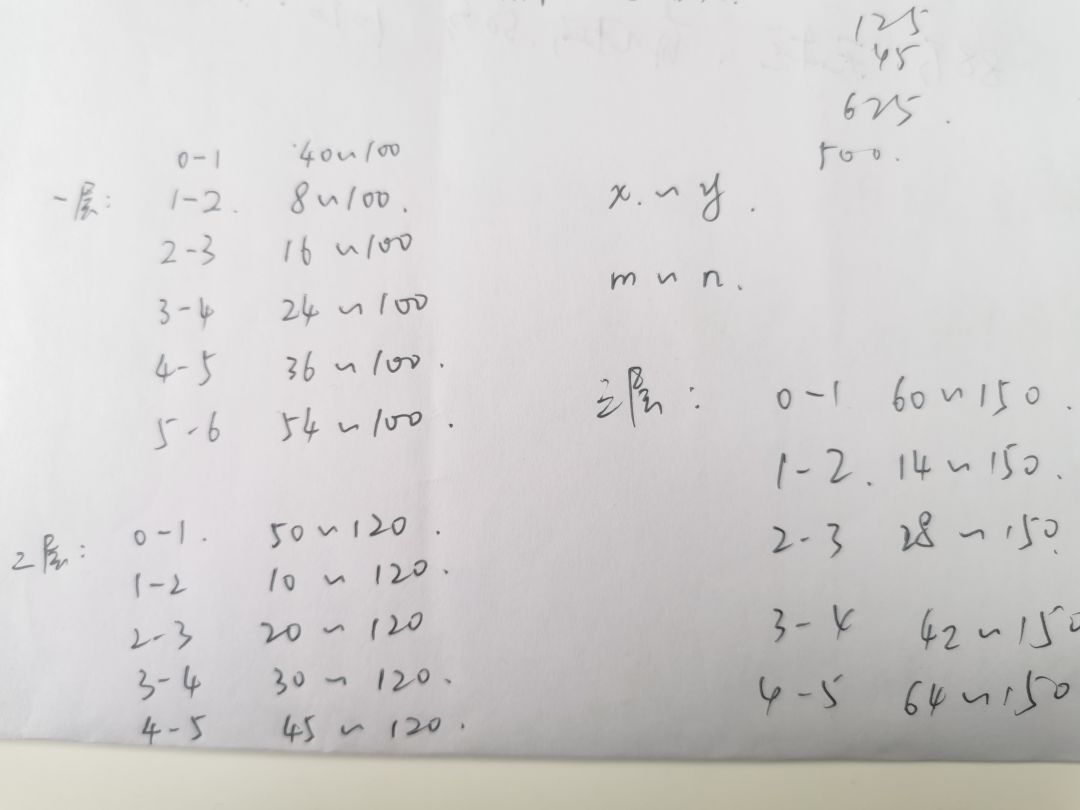 125
45
625.
500.
0-1 40~100
一层: 1-2. 8~100.
2-3 16~100
3-4 24~100
4-5 36~100.
5-6 54~100.
x.~y.
m~n.
二层: 0-1. 50~120.
1-2 10~120.
2-3 20~120
3-4 30~120.
4-5 45~120.
三层: 0-1 60~150.
1-2. 14~150.
2-3 28~150
3-4 42~150
4-5 64~150